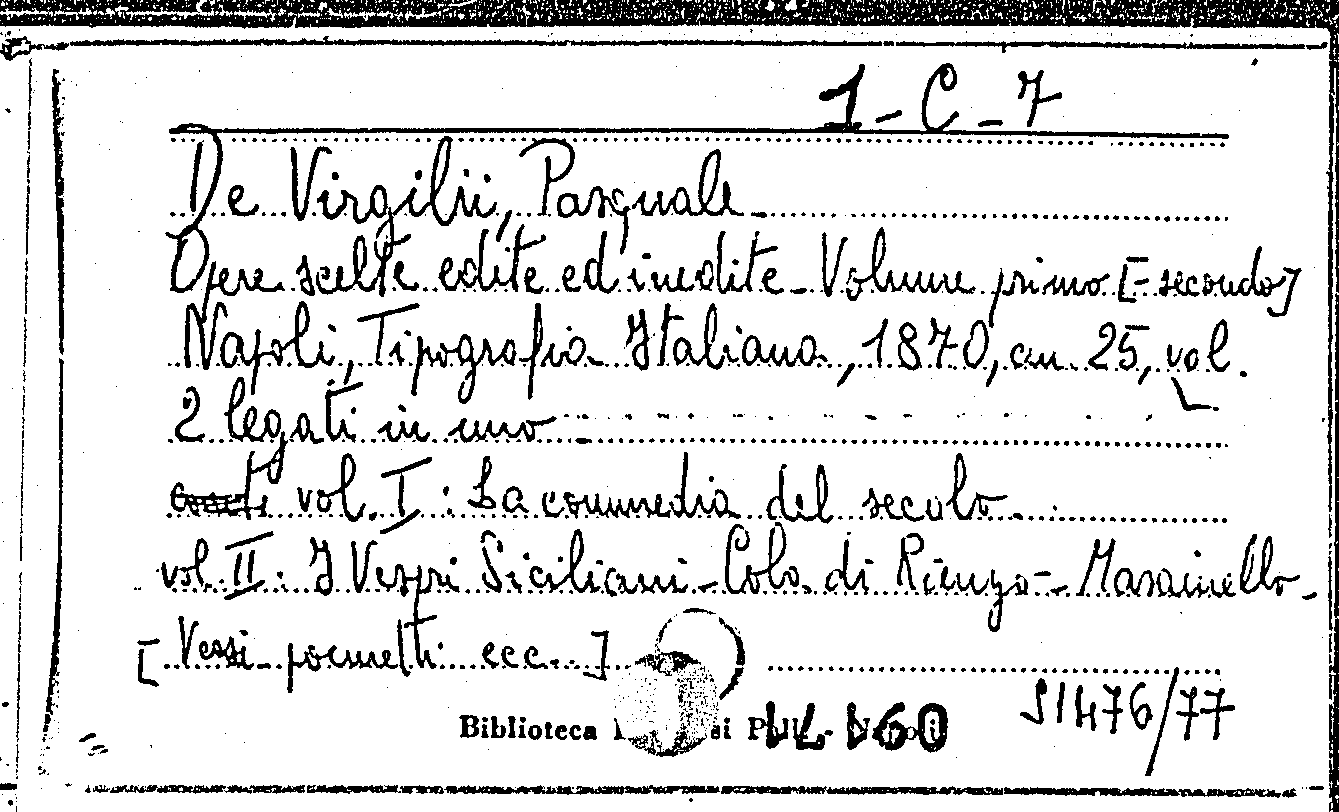 1-C-7
De Virgilii, Pasquale
Opere scelte edite ed inedite - Volume primo [- secondo]
Napoli, Tipografia Italiana, 1870, cm. 25, vol.
2 legati in uno
vol. I : La commedia del secolo -
vol. II : I Vespri Siciliani - Cola di Rienzo - Masaniello -
[Versi - poemetti ecc..]
Biblioteca